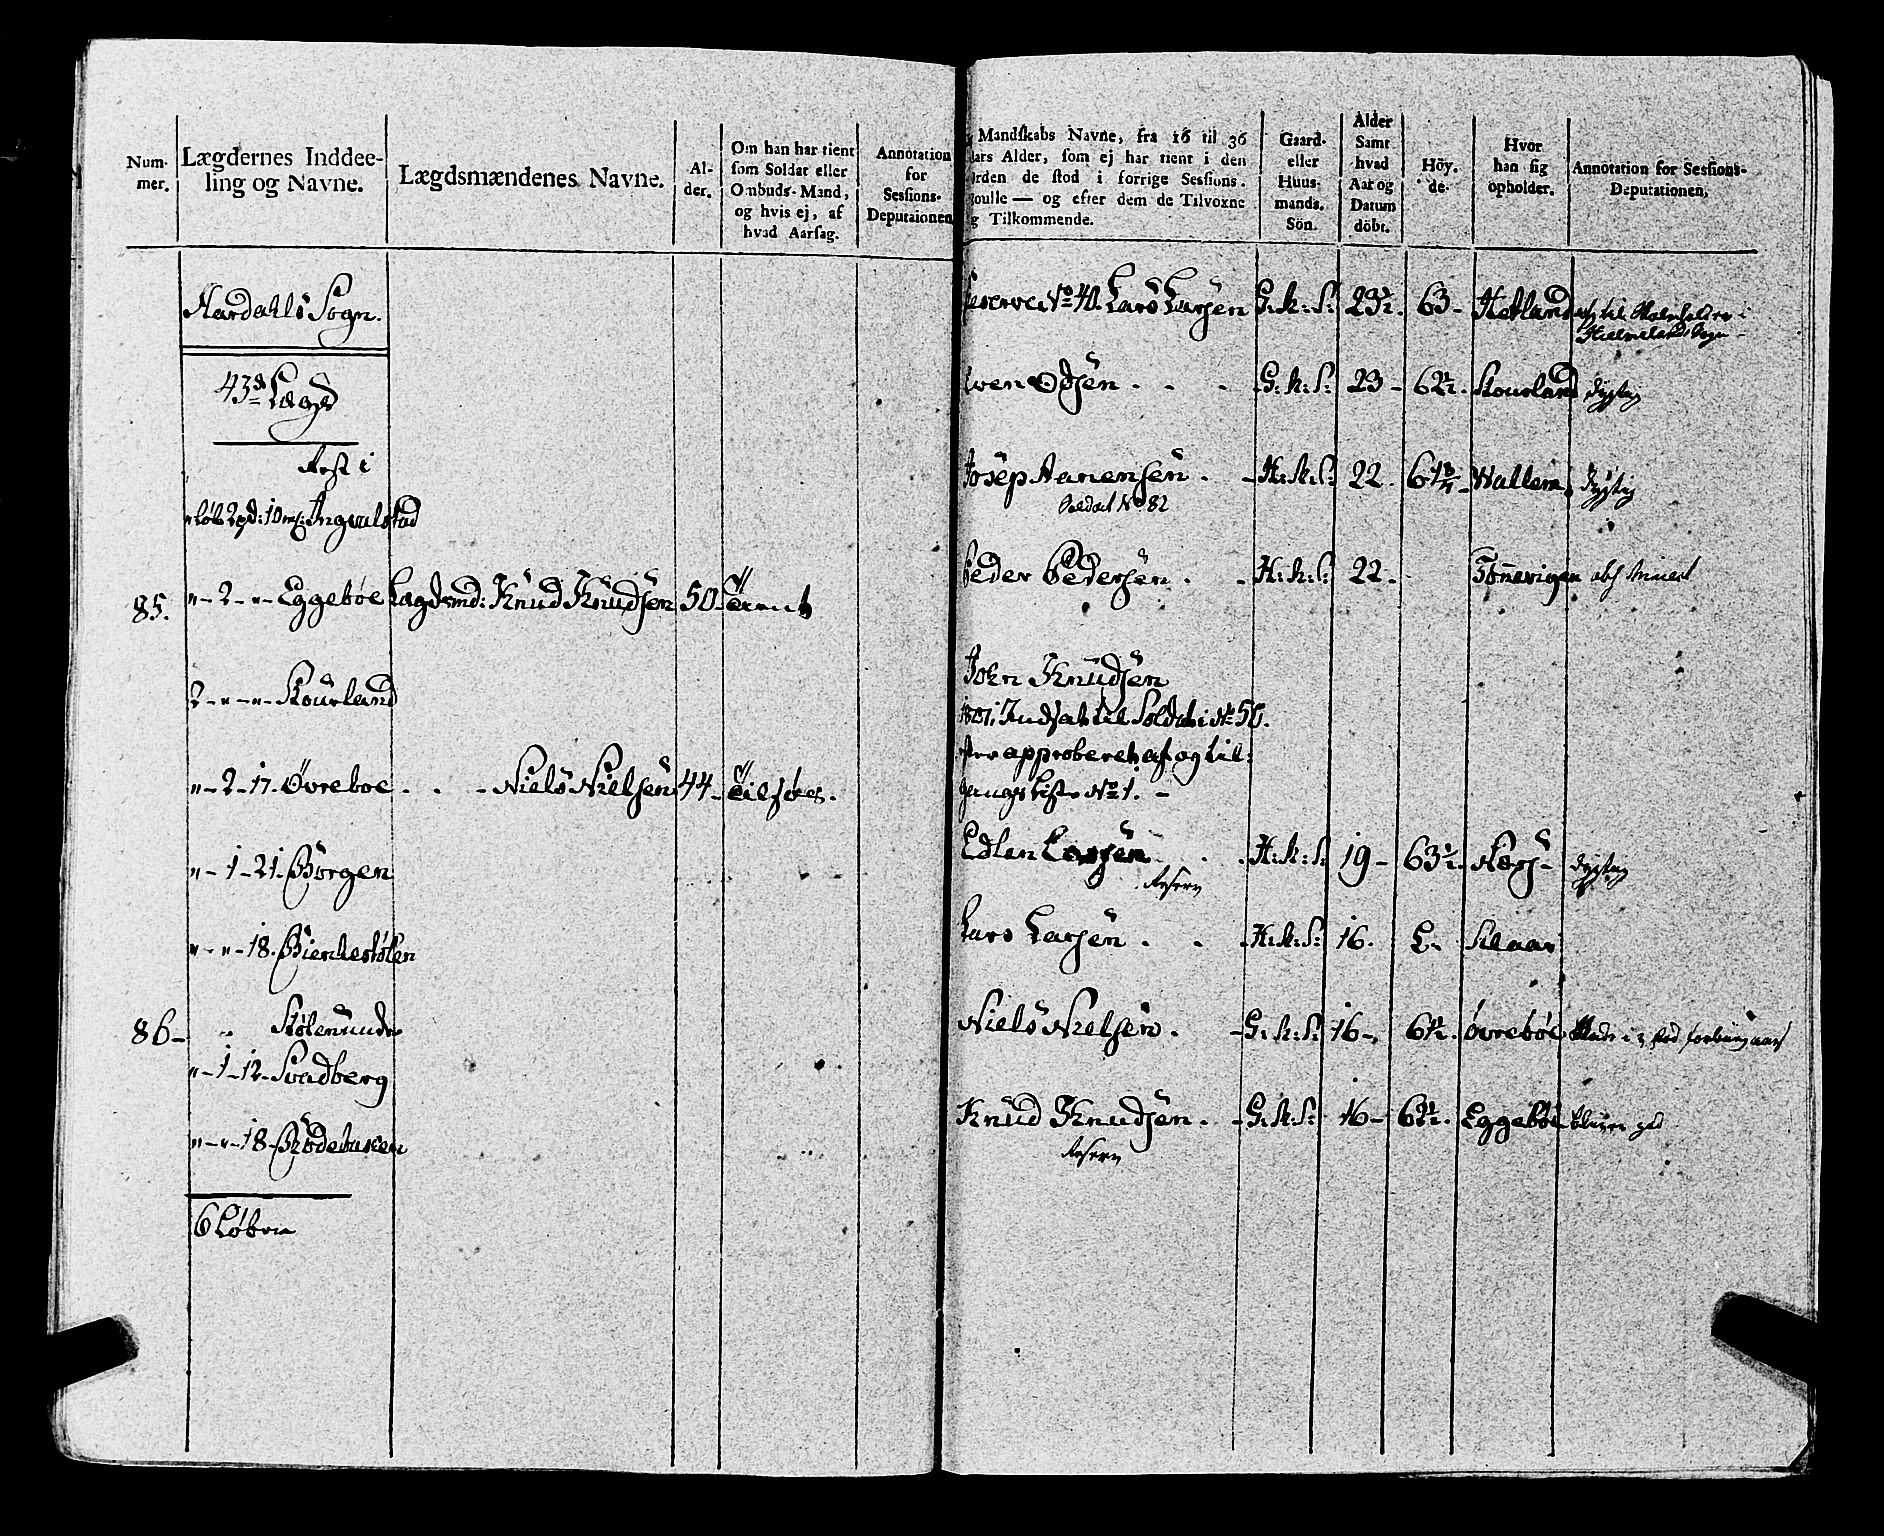 Num-
mer.
Lægdernes Inddee-
ling og Navne.
Lægdsmændenes Navne.
Al-
der.
Om han har tient
som Soldat eller
Ombuds-Mand,
og hvis ej, af
hvad Aarsag.
Annotation
for
Sessions-
Deputaionen
Aardahls Sogn.
43de Lægd
Rest i
" Løb 2 pd: 10 mk: Ingvalstad
85. " - 2 - " - Eggebøe Lægdsmd: Knud Knudsen 50
2 - " - " - Skourland
" - 2 - 17. Øvreboe . . - Niels Nielsen 44 -
" - 1 - 21 - Børgen
" - " - 18.
86 - "
" - 1 - 12 - Svadberg
" - " - 18 -
6 Løber
Mandskabs Navne, fra 16 til 36
Aars Alder, som ej har tient i den
Orden de stod i forrige Sessions-
Roulle — og efter dem de Tilvoxne
og Tilkommende.
Gaard-
eller
Huus-
mands.
Sön.
Alder
Samt
hvad
Aar og
Datum
döbt.
Höy-
de.
Hvor
han sig
opholder.
Annotation for Sessions-
Deputationen,
Reserve No 40. Lars Larsen G: M: S: 23½. 63 - Hetland til i
Hielmelands Sogn -
Sven Odsen . . . G: M: S: 23 - 62½. Skourland dygtig
Josep Aanensen . - H: M: S: 22. Wallem dygtig
Soldat No 82
Peder Pedersen . - H: M: S: 22 - Tønevigen
John Knudsen
1801, Indsat til Soldat i No 50.
approberet af og til:
gangs Liste No 1. -
Edlen Larsen . . - H: M: S: 19 - 63½ - dygtig
Reserv
Lars Larsen . . - H: M: S: 16. L -
Niels Nielsen . - G: M: S: 16 -, 61½. Øvrebøe
Knud Knudsen . - G: M: S: 16 - 62½. Eggebøe
Reserv